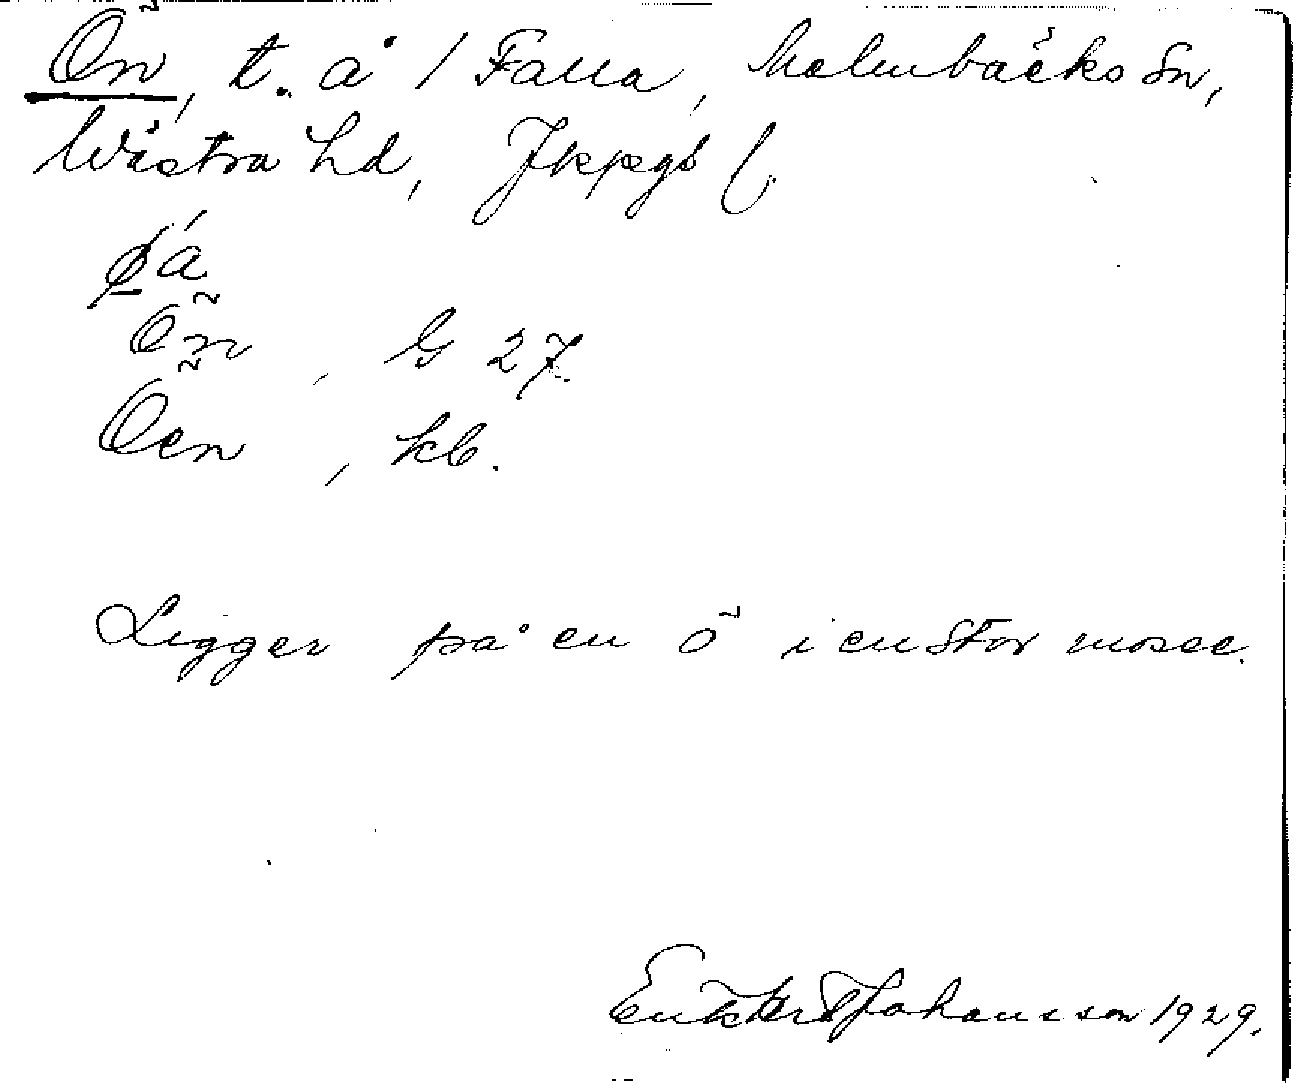 Ön, t. å / Falla, Malmbäcks sn,
Västra hd, Jkpgs l.
ǿ́ á
Ön, G 27
Öen, kb.
Ligger på en ö i en stor mosse.
Johansson 1929.